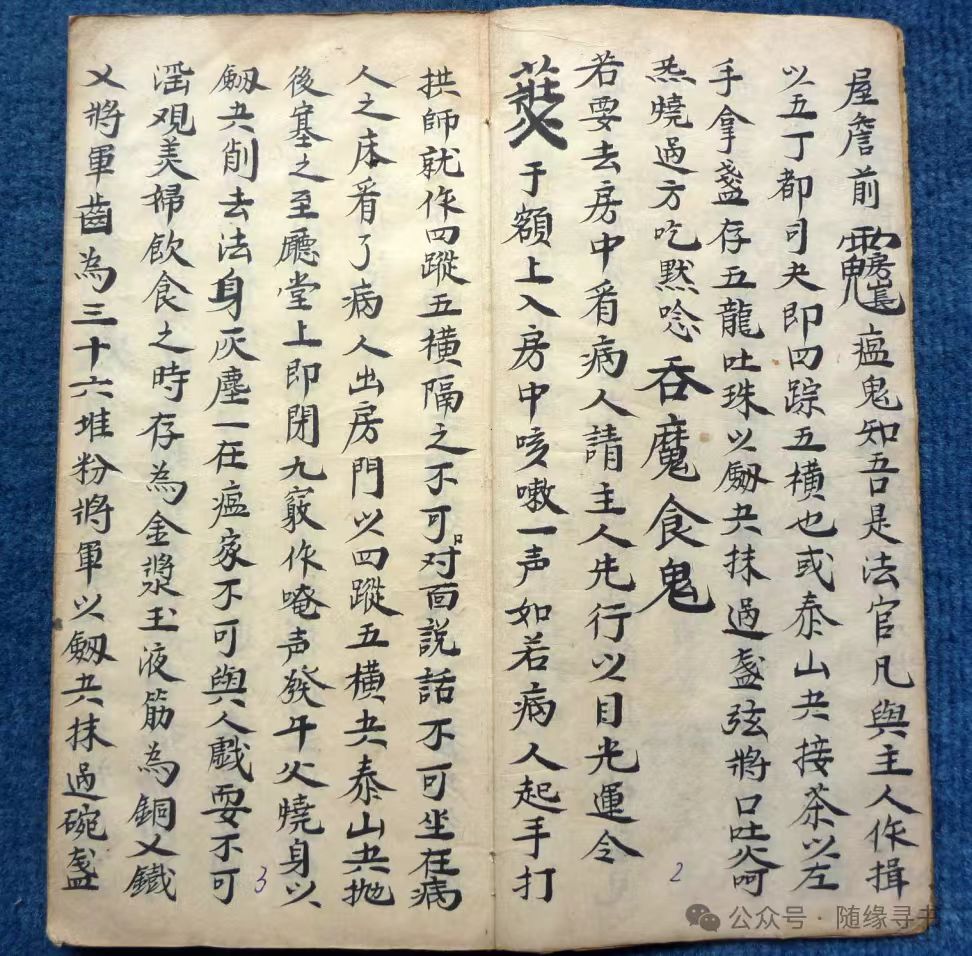 屋詹前瘟鬼知吾是法官凡與主人作揖
以五丁都司夬即四踪五横也或泰山夬接茶以左
手拿盏存五龍吐珠以劔夬抹過盞弦將口吐火呵
炁燒過方吃黙唸吞魔食鬼
若要去房中看病人請主人先行以目光運令
于額上入房中咳嗽一声如若病人起手打
拱師就作四蹤五横隔之不可对面説話不可坐在病
人之床看了病人出房門以四蹤五横夬泰山夬抛
後塞之至廳堂上即閉九竅作唵声發午火燒身以
劔夬削去法身灰塵一在瘟家不可與人戲耍不可
淫观美婦飲食之時存為金漿玉液筋為銅叉鐵
叉將軍齒為三十六堆粉將軍以劔夬抹過碗盞
2
3
公众号·随缘寻书